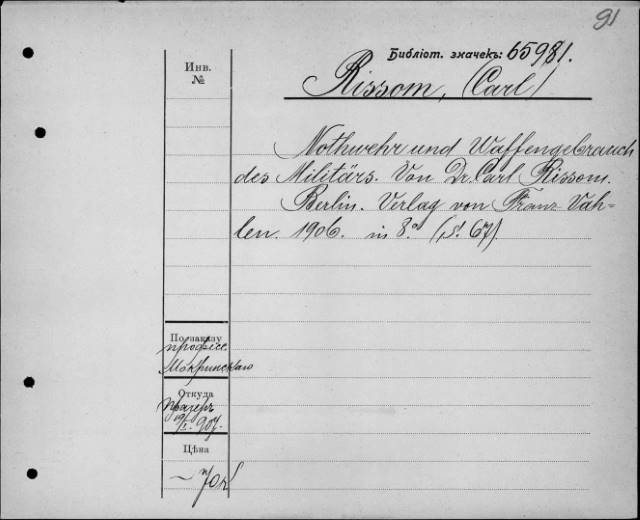 91
Библіот. значекъ: 65981.
Инв.
№
Rissom, (Carl)
Nothwehr und Waffengebrauch
des Militärs. Von Dr. Carl Rissom.
Berlin. Verlag von Franz Vah-
len. 1906. in 8.° (S. 67).
По заказу
професс.
Мокринскаго
Откуда
907.
Цѣна
– 70 к